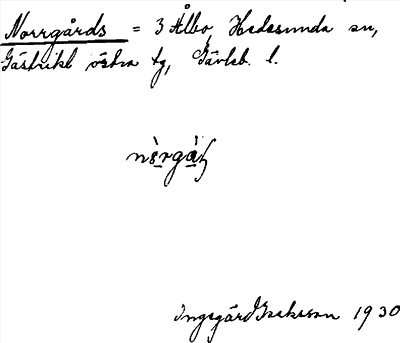 Norrgårds = 3 Ålbo, Hedesunda sn,
Gästrikl östra tg, Gävleb. l.
Ingegärd Isaksson 1930